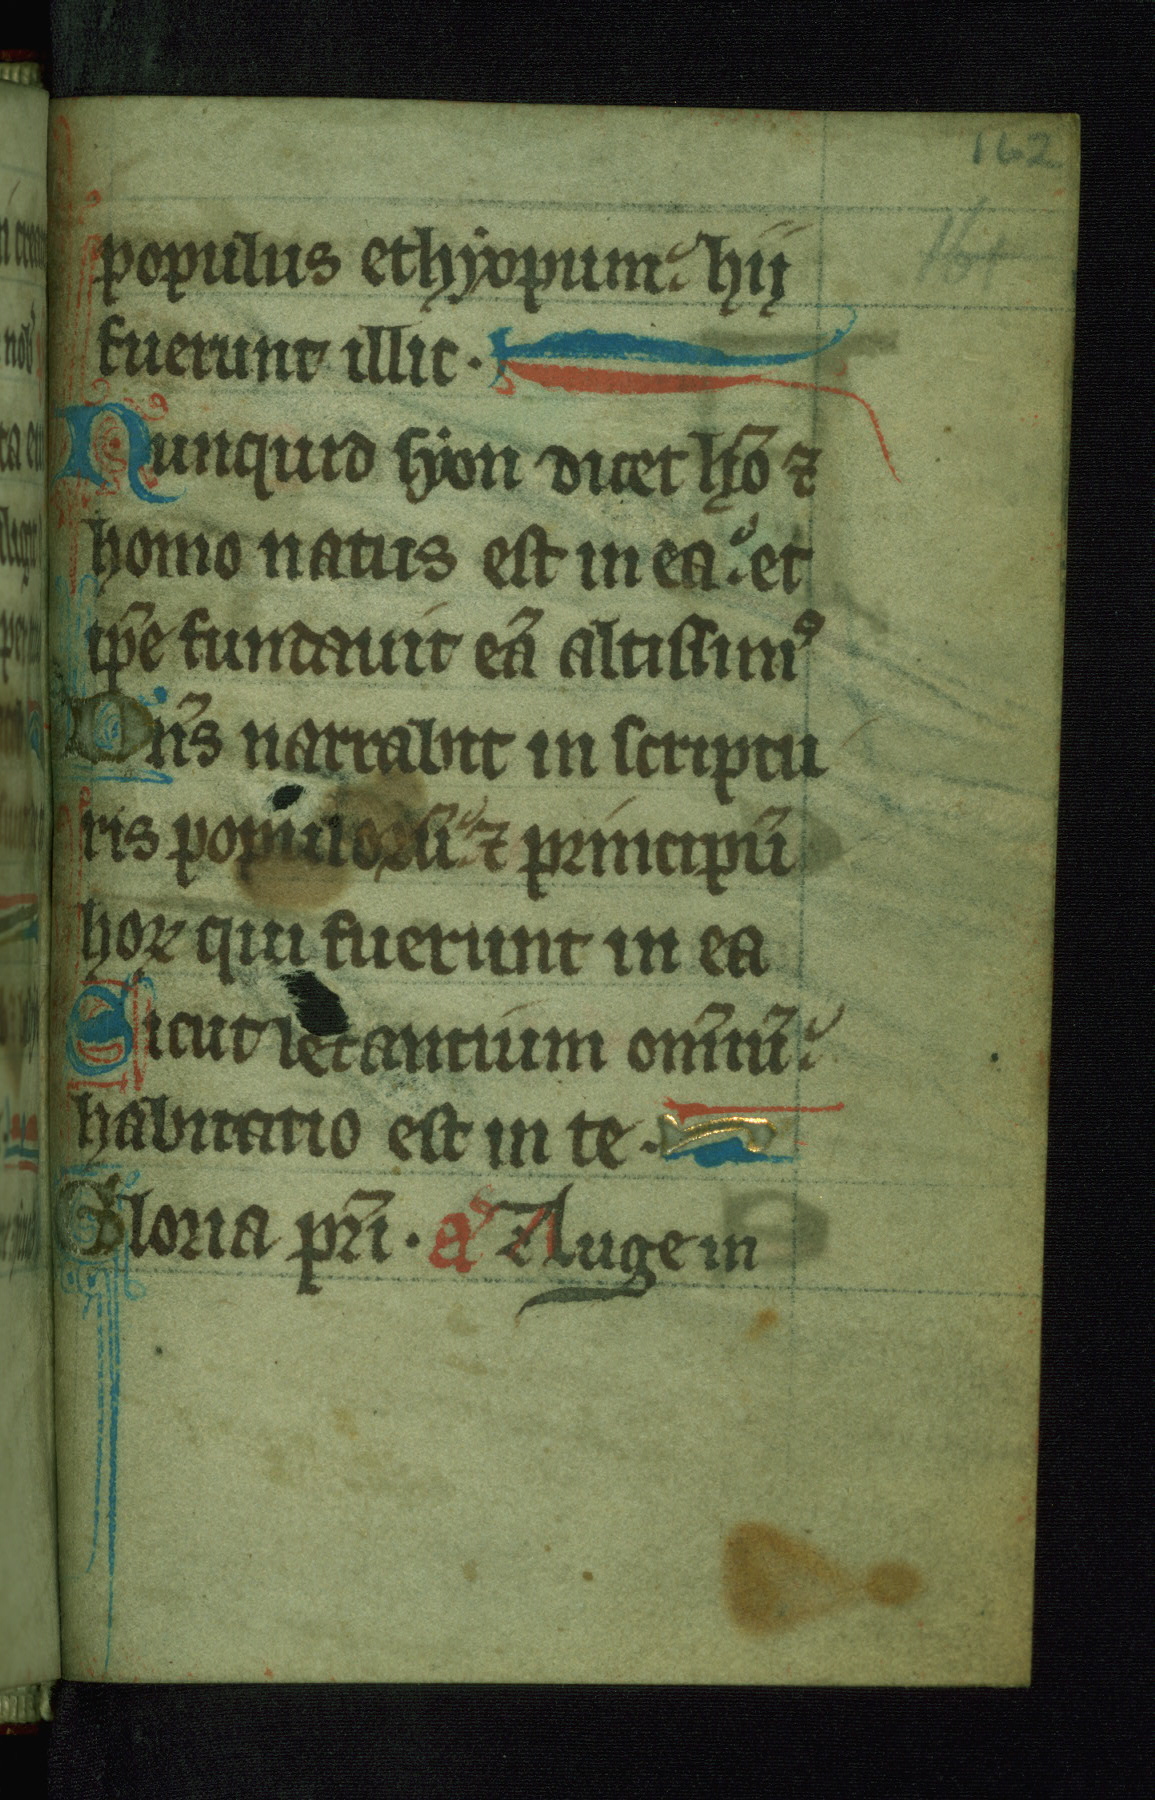 162
populus ethyopum: hij
fuerunt illic.
Nunquid syon dicet hõ ⁊
homo natus est in ea: et
ip̃e fundauit eã altissimꝰ
Dñs narrabit in scriptu
ris populorũ: ⁊ principũ
hoꝝ qui fuerunt in ea
Sicut letantium om̃iũ:
habitatio est in te.
Gloria pr̃i. a͛ Auge in